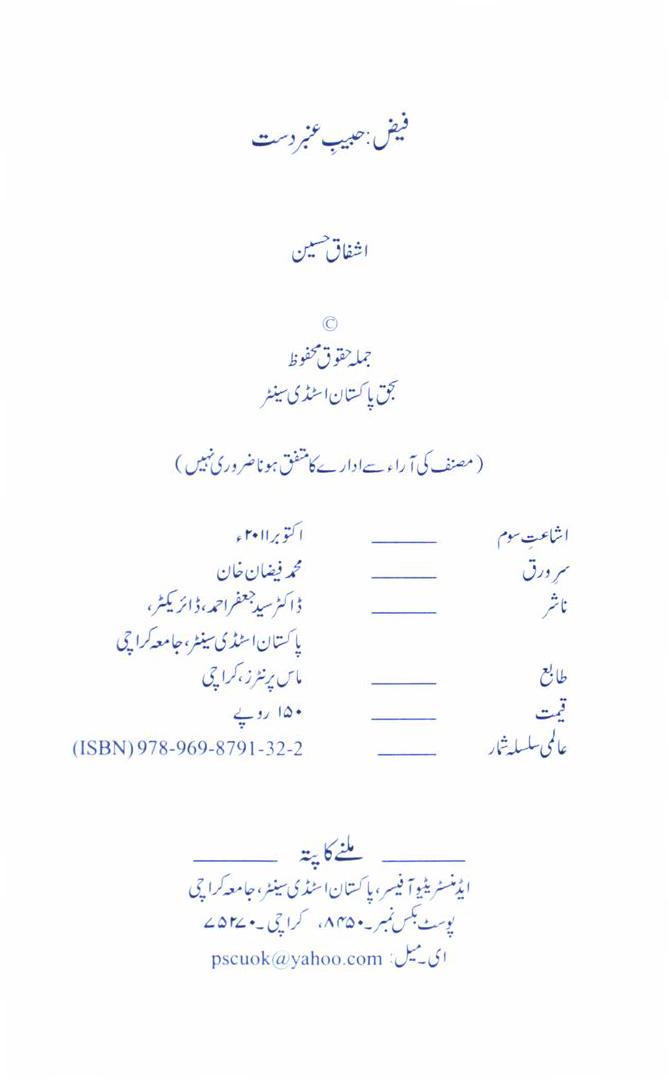 فیض: حبیبِ عنبر دست
اشفاق حسین
©
جملہ حقوق محفوظ
بحق پاکستان اسٹڈی سینٹر
(مصنف کی آراء سے ادارے کا متفق ہونا ضروری نہیں)
اشاعتِ سوم ______ اکتوبر ۲۰۱۱ء
سرِ ورق ______ محمد فیضان خان
ناشر ______ ڈاکٹر سید جعفر احمد، ڈائریکٹر،
پاکستان اسٹڈی سینٹر، جامعہ کراچی
طابع ______ ماس پرنٹرز، کراچی
قیمت ______ ۱۵۰ روپے
عالمی سلسلہ شمار ______ 978-969-8791-32-2 (ISBN)
______ ملنے کا پتہ ______
ایڈمنسٹریٹیو آفیسر، پاکستان اسٹڈی سینٹر، جامعہ کراچی
پوسٹ بکس نمبر۔۸۴۵۰، کراچی۔۷۵۲۷۰
ای۔میل: pscuok@yahoo.com